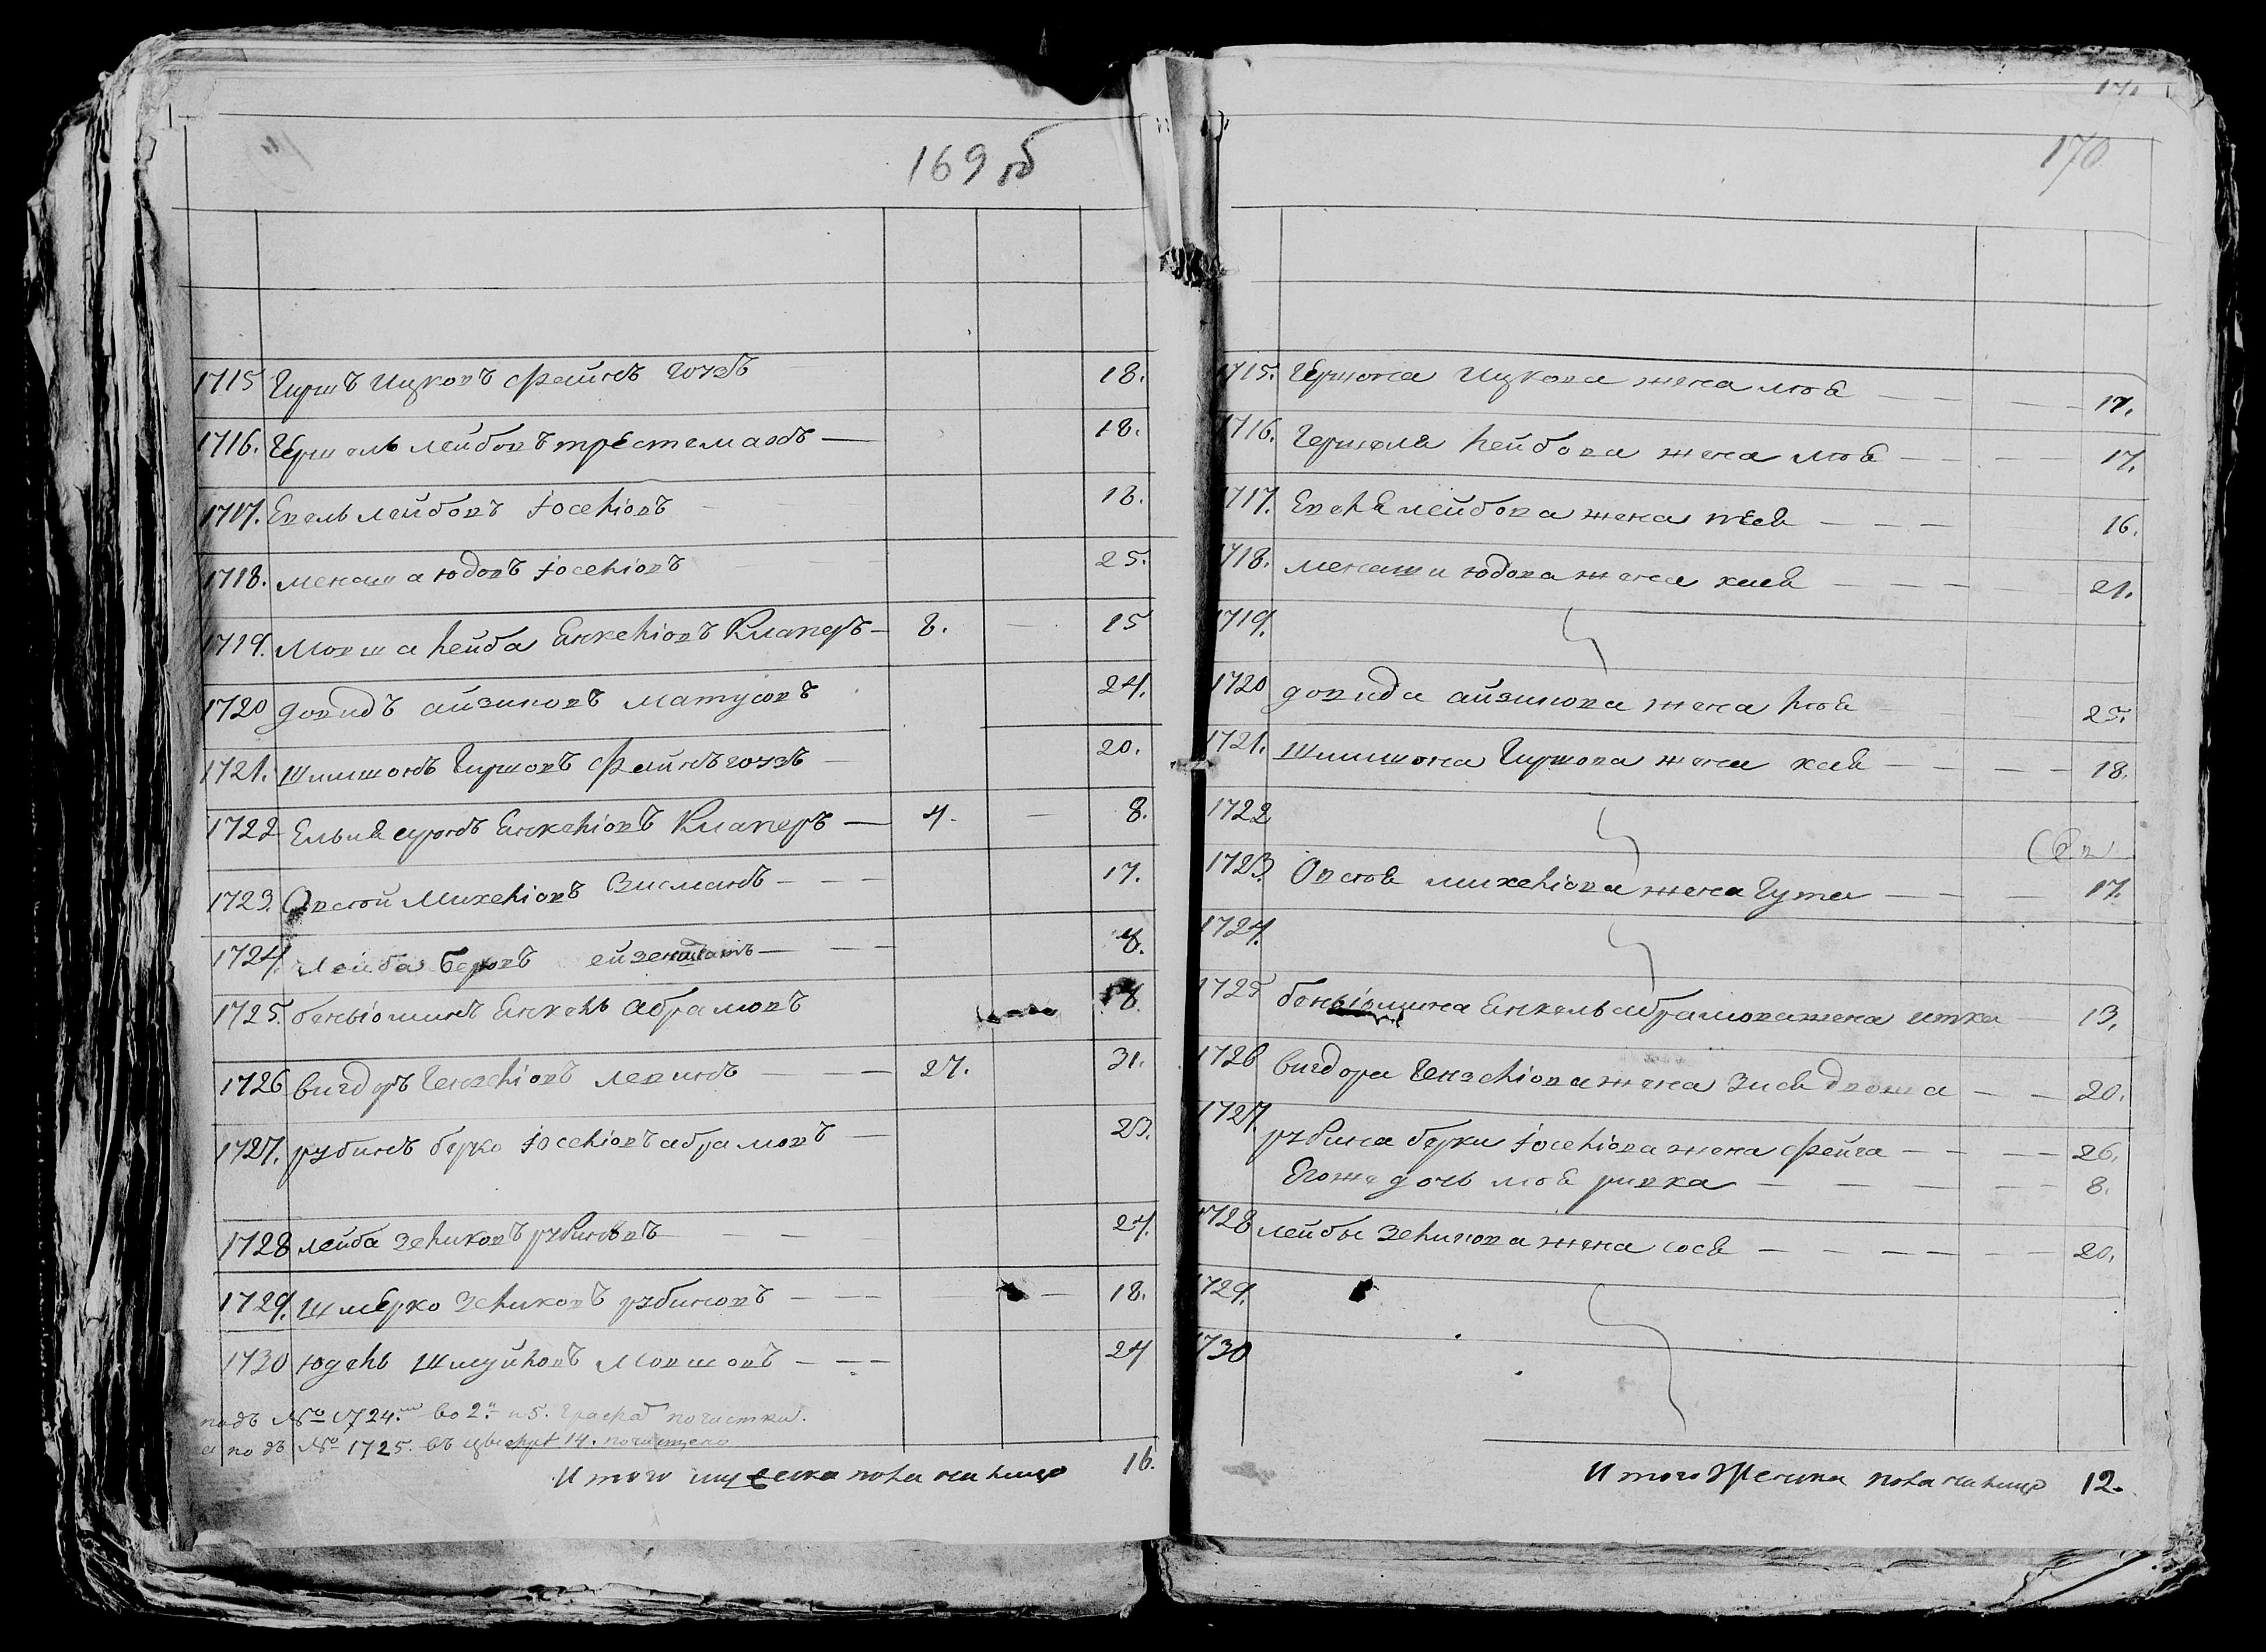 169 об
1715 Гиршъ Ицковъ Файнъ гочъ 18.
1716. Гершель Лейбовъ Трестеманъ — 18.
1717. Евель Лейбовъ Іоселіовъ 18.
1718. Менаша Юдовъ Іоселіовъ 25.
1719. Мовша Лейба Енкеліовъ Клаперъ — 8. — 15
1720 Довидъ Айзиковъ Матусовъ 24.
1721. Шимшонъ Гиршовъ Файнъ гочъ — 20.
1722 Ельяѣ Сунъ Енкеліовъ Клаперъ — 4. — 8.
1723. Овсѣй Михеліовъ Зисманъ — — — 17.
1724. Лейба Беровъ — — — 8.
1725. Беніоминъ Енкель Абрамовъ 18
1726 Вигдоръ Гензеліовъ Левинъ — — — 27. 31.
1727. Рубинъ Берко Іоселіовъ Абрамовъ — 23.
1728 Лейба Зеликовъ Рубиновъ — — 24.
1729. Шмерко Зеликовъ Рубиновъ — — — — 18.
1730 Юдель Шмуйловъ Мовшовъ — — — 24
подъ № 1724.мъ во 2.й и 5. графѣ почистки.
и подъ № 1725. въ цыфрѣ 14. почищено
Итого мужеска пола на лицо 16.
171
170
1715. Гершона Ицкова жена Люѣ — — — — 17.
1716. Гершеля Лейбова жена Люѣ — — — — 17.
1717. Евеля Лейбова жена — — — 16.
1718. Менаши Юдова жена Хаеѣ — — — — 21.
1719.
1720 Довида Айзикова жена Люѣ 25.
1721. Шимшона Гиршова жена Хаеѣ — — — — 18.
1722
1723. Овсѣѣ Михеліова жена Гута — — — 17.
1724.
1725 Беніомина Енкель Абрамова жена Итка 13.
1726 Вигдора Гензеліова жена Зисѣ Двоша — — 20.
1727. Рубина Берки Іоселіова жена Фейга — — — — 26.
Егожъ дочь Люѣ Ривка — — — — — 8.
1728 Лейбы Зеликова жена Сосѣ — — — — — — 20.
1729.
1730
Итого Женска пола на лицо 12.